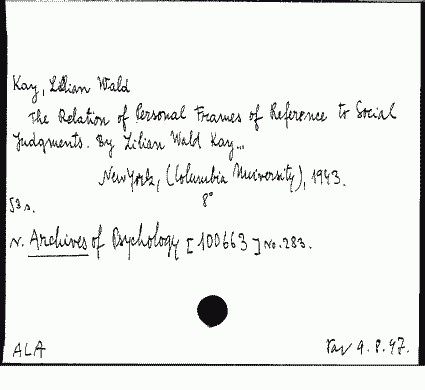 Kay, Lilian Wald
The Relation of Personal Frames of Reference to Social
Judgments. By Lilian Wald Kay...
New York, (Columbia University), 1943.
8°
53 s.
N. Archives of Psychology [100663] No. 283.
ALA
9.8.47.